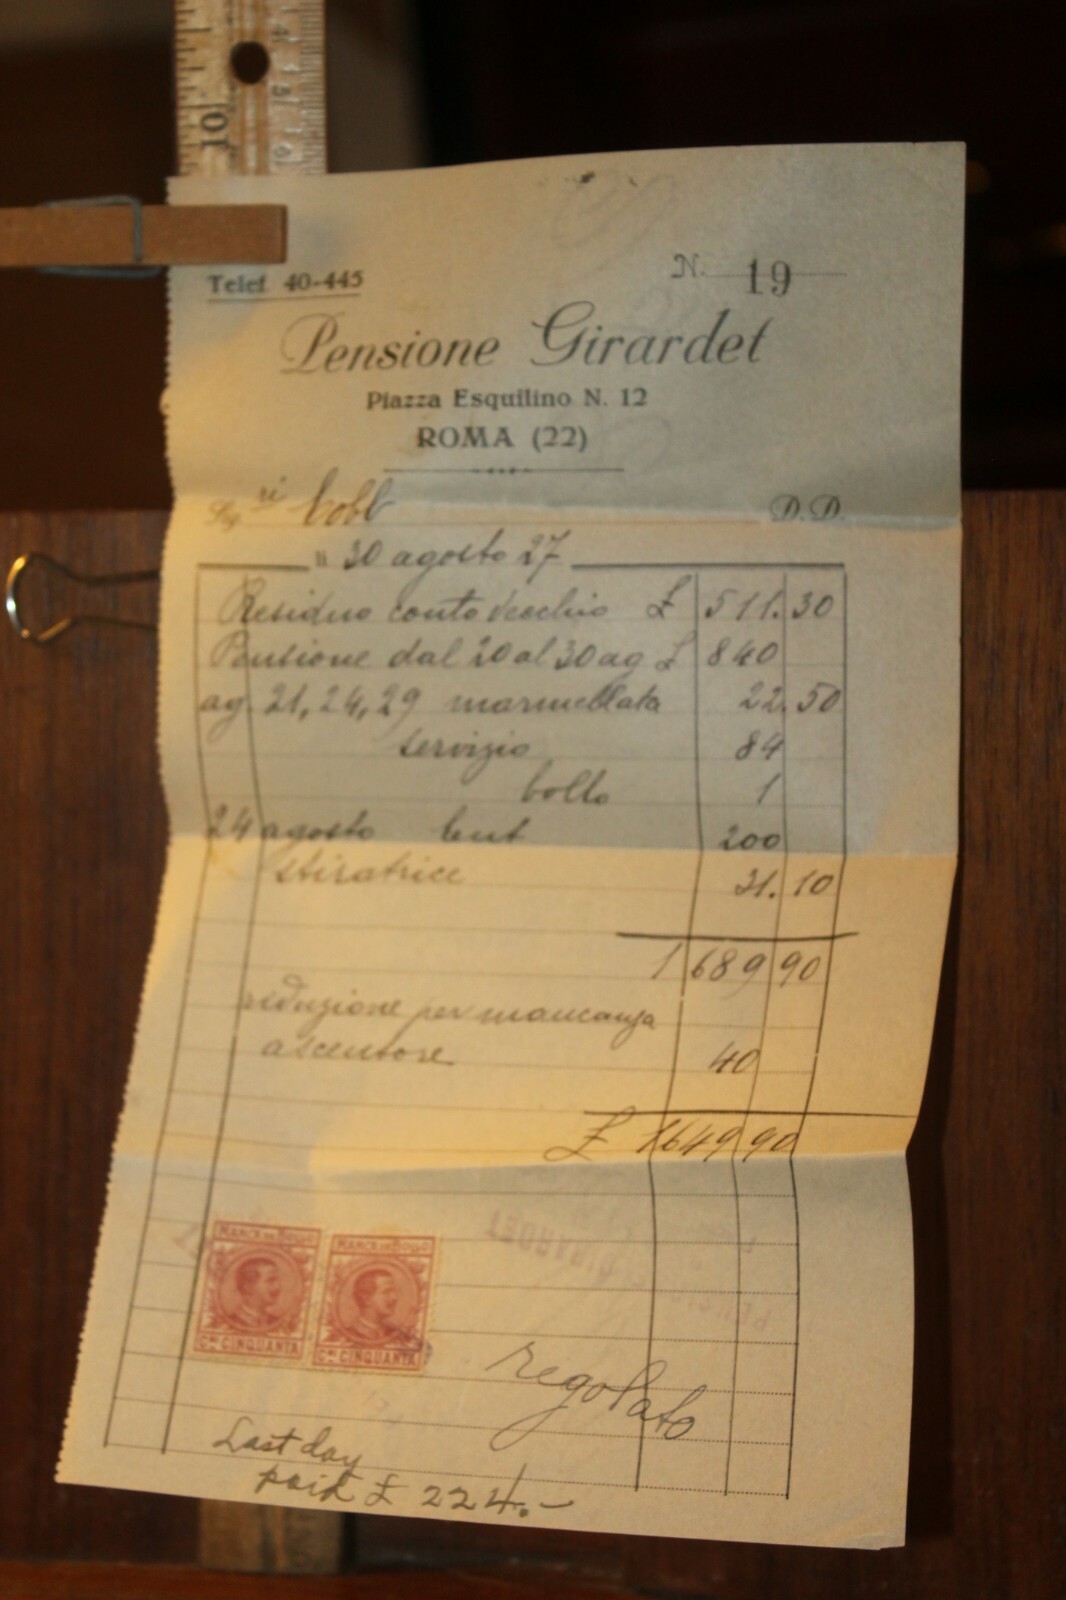 10
Telef 40-445
N. 19
Pensione Girardet
Piazza Esquilino N. 12
ROMA (22)
Sig.ri Cobb D.D.
li 30 agosto 27
Residuo conto vecchio £ 511.30
Pensione dal 20 al 30 ag £ 840
ag. 21, 24, 29 marmellata 22.50
servizio 84
bollo 1
24 agosto 200
stiratrice 31.10
1689 90
riduzione per mancanza
ascensore 40
£ 1649 90
MARCA DA BOLLO MARCA DA BOLLO
CMI CINQUANTA CMI CINQUANTA
GIRARDET
regolato
Last day
paid £ 224.-